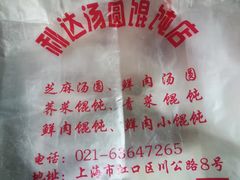 利达汤圆馄饨店
芝麻汤圆、鲜肉汤圆
荠菜馄饨、青菜馄饨
鲜肉馄饨、鲜肉小馄饨
电话：021-63647265
地址：上海市虹口区川公路8号